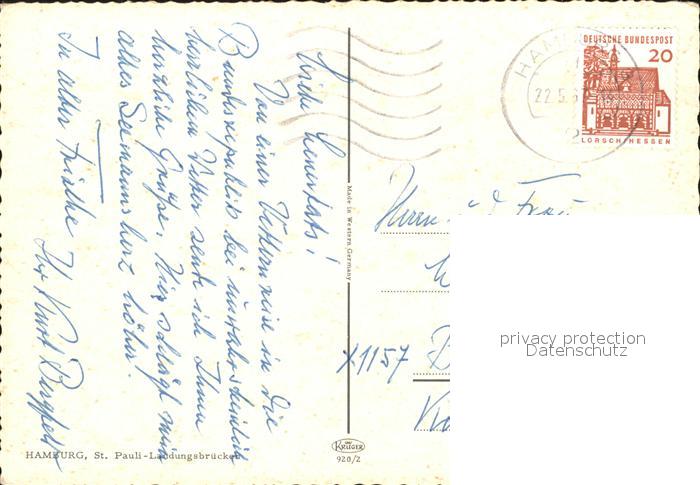 Liebe
Von einer Vetternreise in die
Bundesrepublik bei unwahrscheinlich
herrlichem Wetter sende ich Ihnen
herzliche Grüße. Hier schlägt mein
altes Seemannsherz höher.
In alter Frische
Ihr Kurt
HAMBURG, St. Pauli-Landungsbrücken
Made in Western Germany
KRÜGER
920/2
HAM
22.5.6
DEUTSCHE BUNDESPOST
20
LORSCH/HESSEN
Herrn u. Frau
X1157
privacy protection
Datenschutz